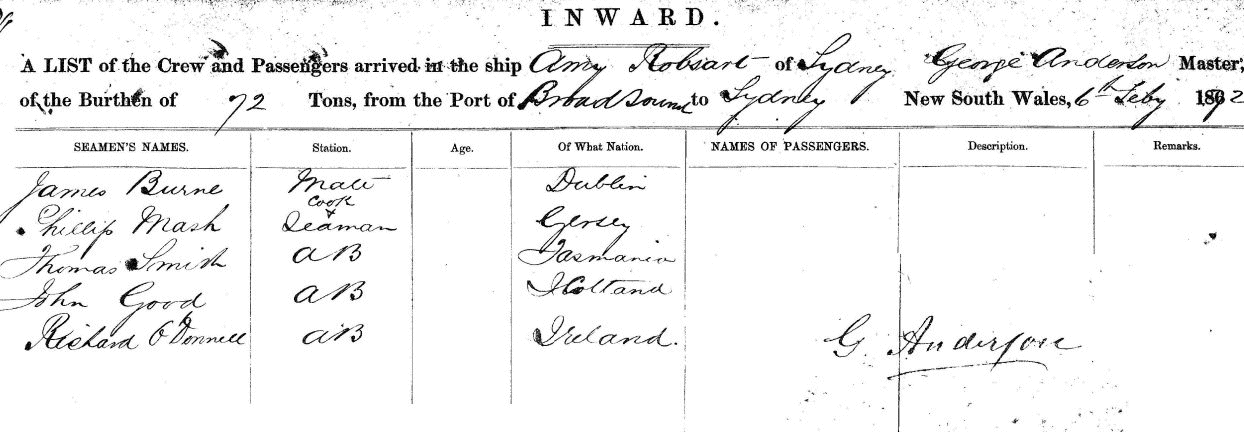 INWARD.
A LIST of the Crew and Passengers arrived in the ship Amy Robsart of Sydney George Anderson Master,
of the Burthen of 72 Tons, from the Port of Broad Sound to Sydney New South Wales, 6th Feby 1872
SEAMEN'S NAMES. Station. Age. Of What Nation. NAMES OF PASSENGERS. Description. Remarks.
James Burne Mate Dublin
Cook
Phillip Mash & Seaman Gersey
Thomas Smith AB Tasmania
John Good AB Holland
Richard O'Donnell AB Ireland.
G. Anderson